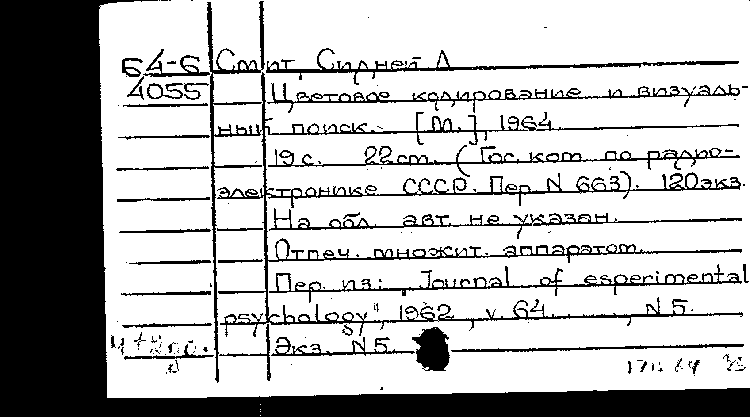 64-6 Смит, Сидней Л
4055 Цветовое кодирование и визуаль-
ный поиск. [М.], 1964.
19 с. 22 см. (Гос. ком. по радио-
электронике СССР. Пер N 663). 120 экз.
На обл. авт. не указан.
Отпеч. множит. аппаратом.
Пер. из: „Journal of esperimental
psychology", 1962, v. 64, N 5.
Экз. N 5